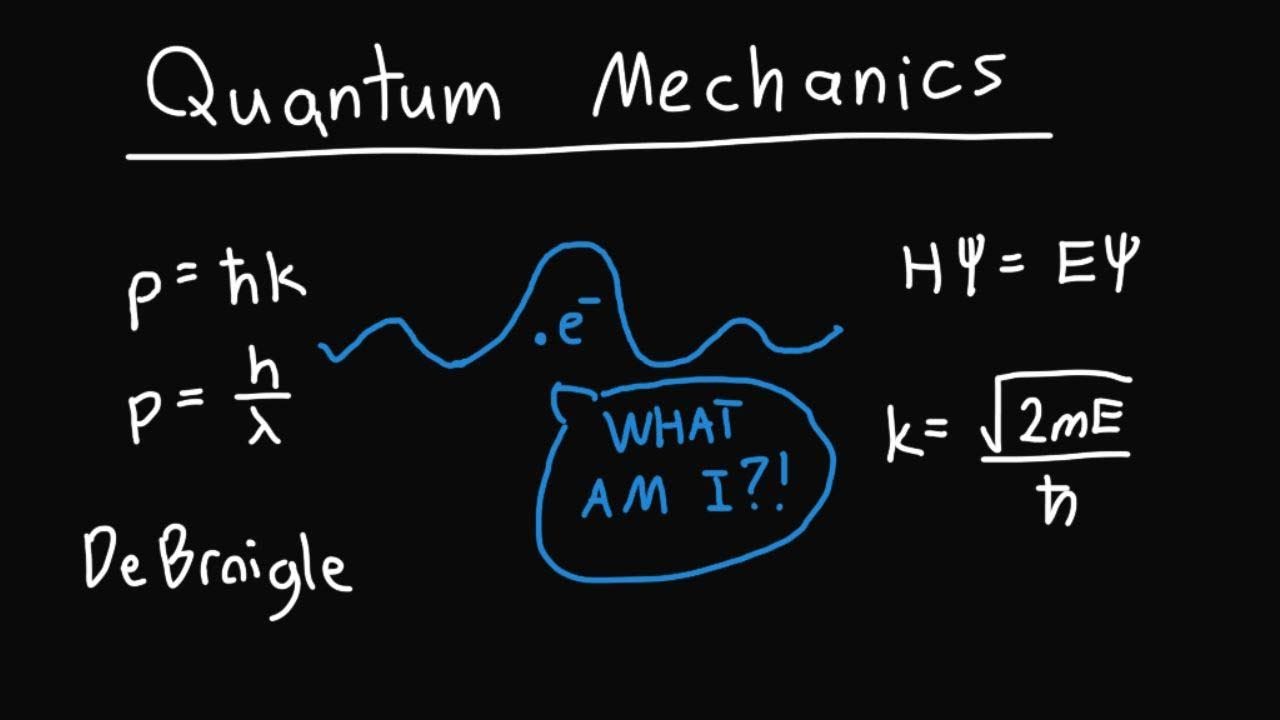 Quantum Mechanics
p = ħk
p = h/λ
De Braigle
.e⁻
WHAT
AM I?!
HΨ = EΨ
k = √2mE/ħ